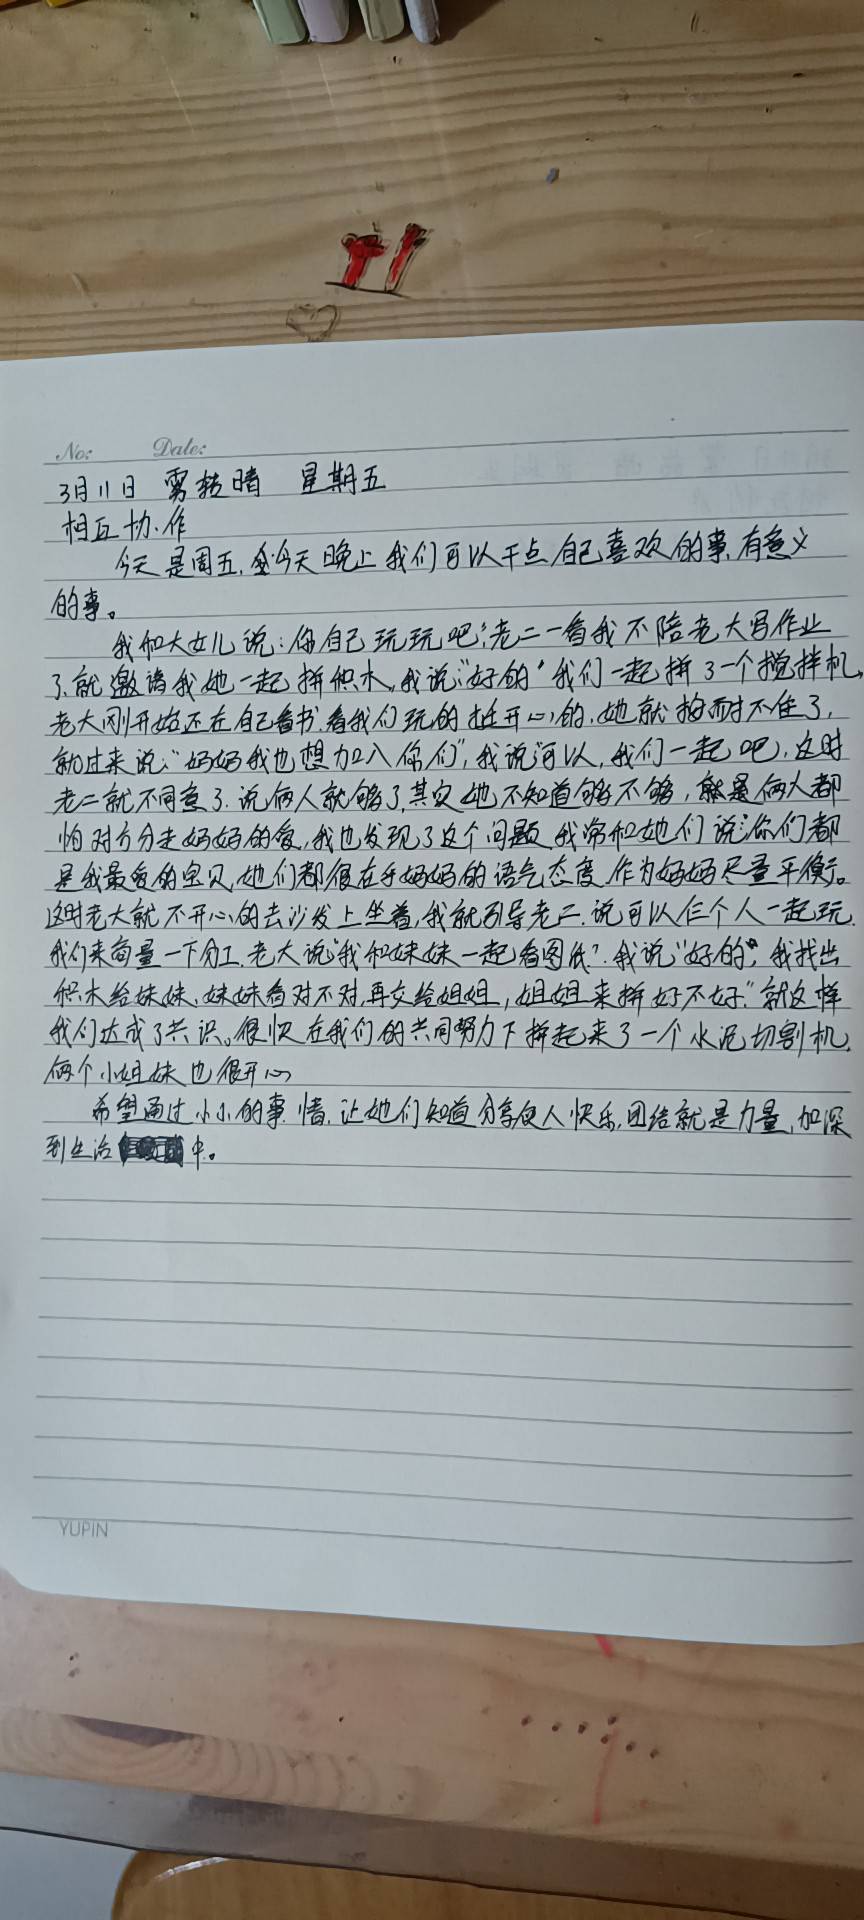 No:    Date:
3月11日 雾转晴 星期五
相互协作
今天是周五,今天晚上我们可以干点自己喜欢的事,有意义
的事。
我和大女儿说:你自己玩玩吧,老二一看我不陪老大写作业
了,就邀请我她一起拼积木,我说:“好的”我们一起拼了一个搅拌机,
老大刚开始还在自己看书,看我们玩的挺开心的,她就按耐不住了,
就过来说:“妈妈我也想加入你们”,我说可以,我们一起吧,这时
老二就不同意了,说俩人就够了,其实她不知道够不够,就是俩人都
怕对方分走妈妈的爱,我也发现了这个问题,我常和她们说:你们都
是我最爱的宝贝,她们都很在乎妈妈的语气态度,作为妈妈尽量平衡。
这时老大就不开心的去沙发上坐着,我就引导老二,说可以仨个人一起玩,
我们来商量一下分工,老大说“我和妹妹一起看图纸”,我说“好的”,我找出
积木给妹妹,妹妹看对不对,再交给姐姐,姐姐来拼好不好”就这样
我们达成了共识。很快在我们的共同努力下拼起来了一个水泥切割机,
俩个小姐妹也很开心
希望通过小小的事情,让她们知道分享使人快乐,团结就是力量,加深
到生活中。
YUPIN